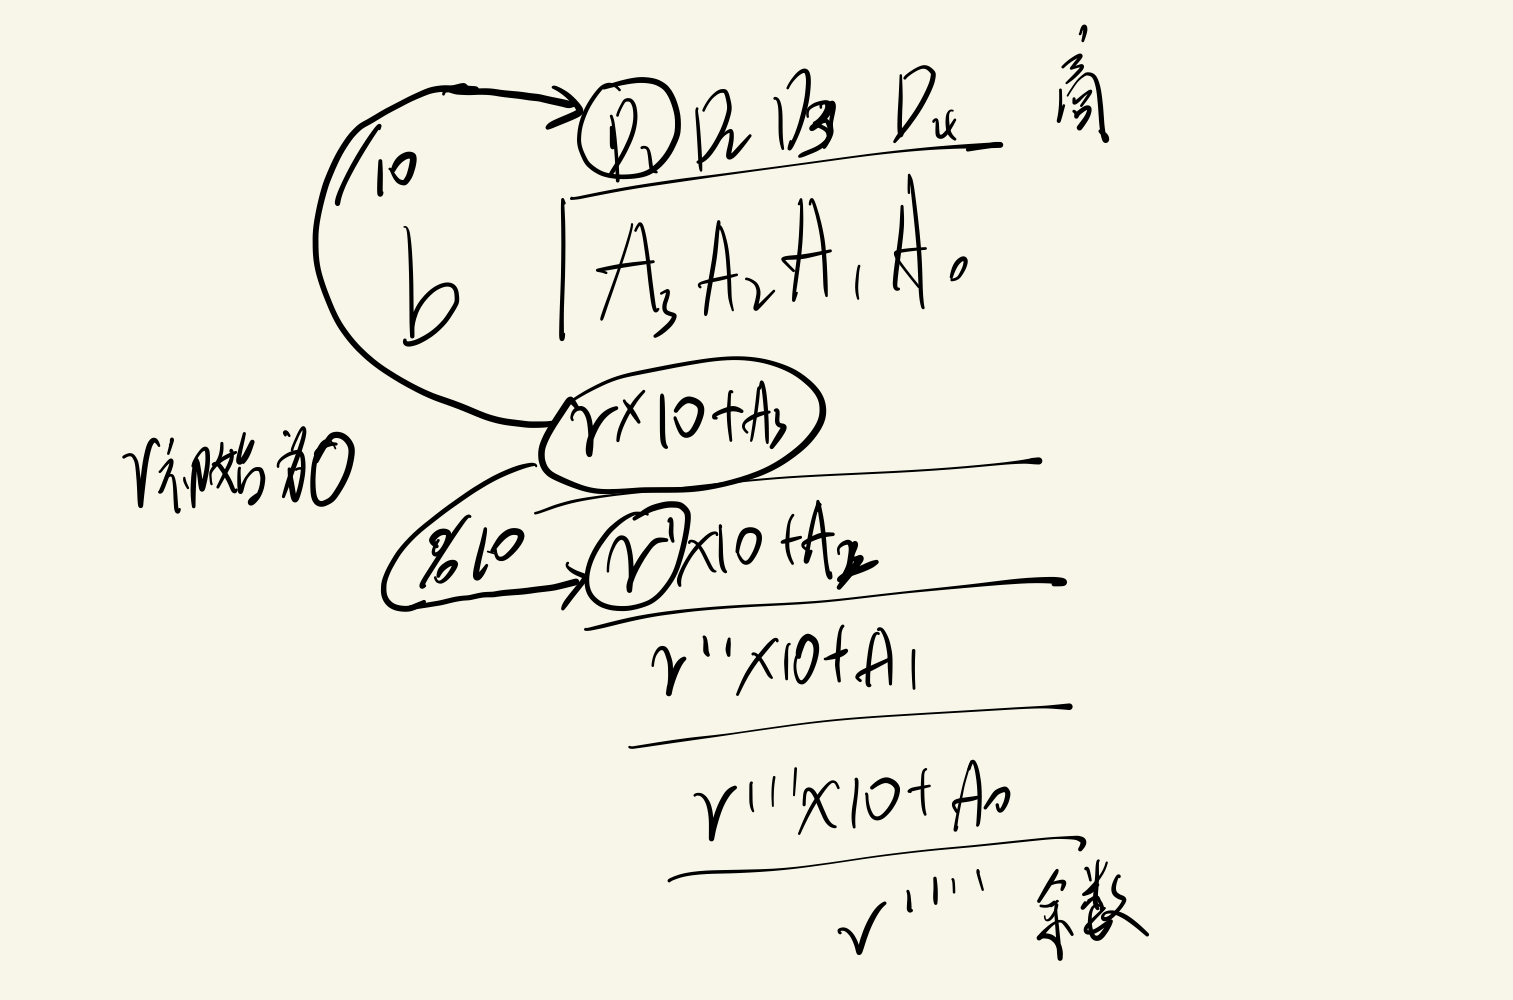 D₁ D₂ D₃ D₄ 商
/10
b A₃ A₂ A₁ A₀
r×10+A₃
r初始为0
%10 r'×10+A₂
r''×10+A₁
r'''×10+A₀
r'''' 余数